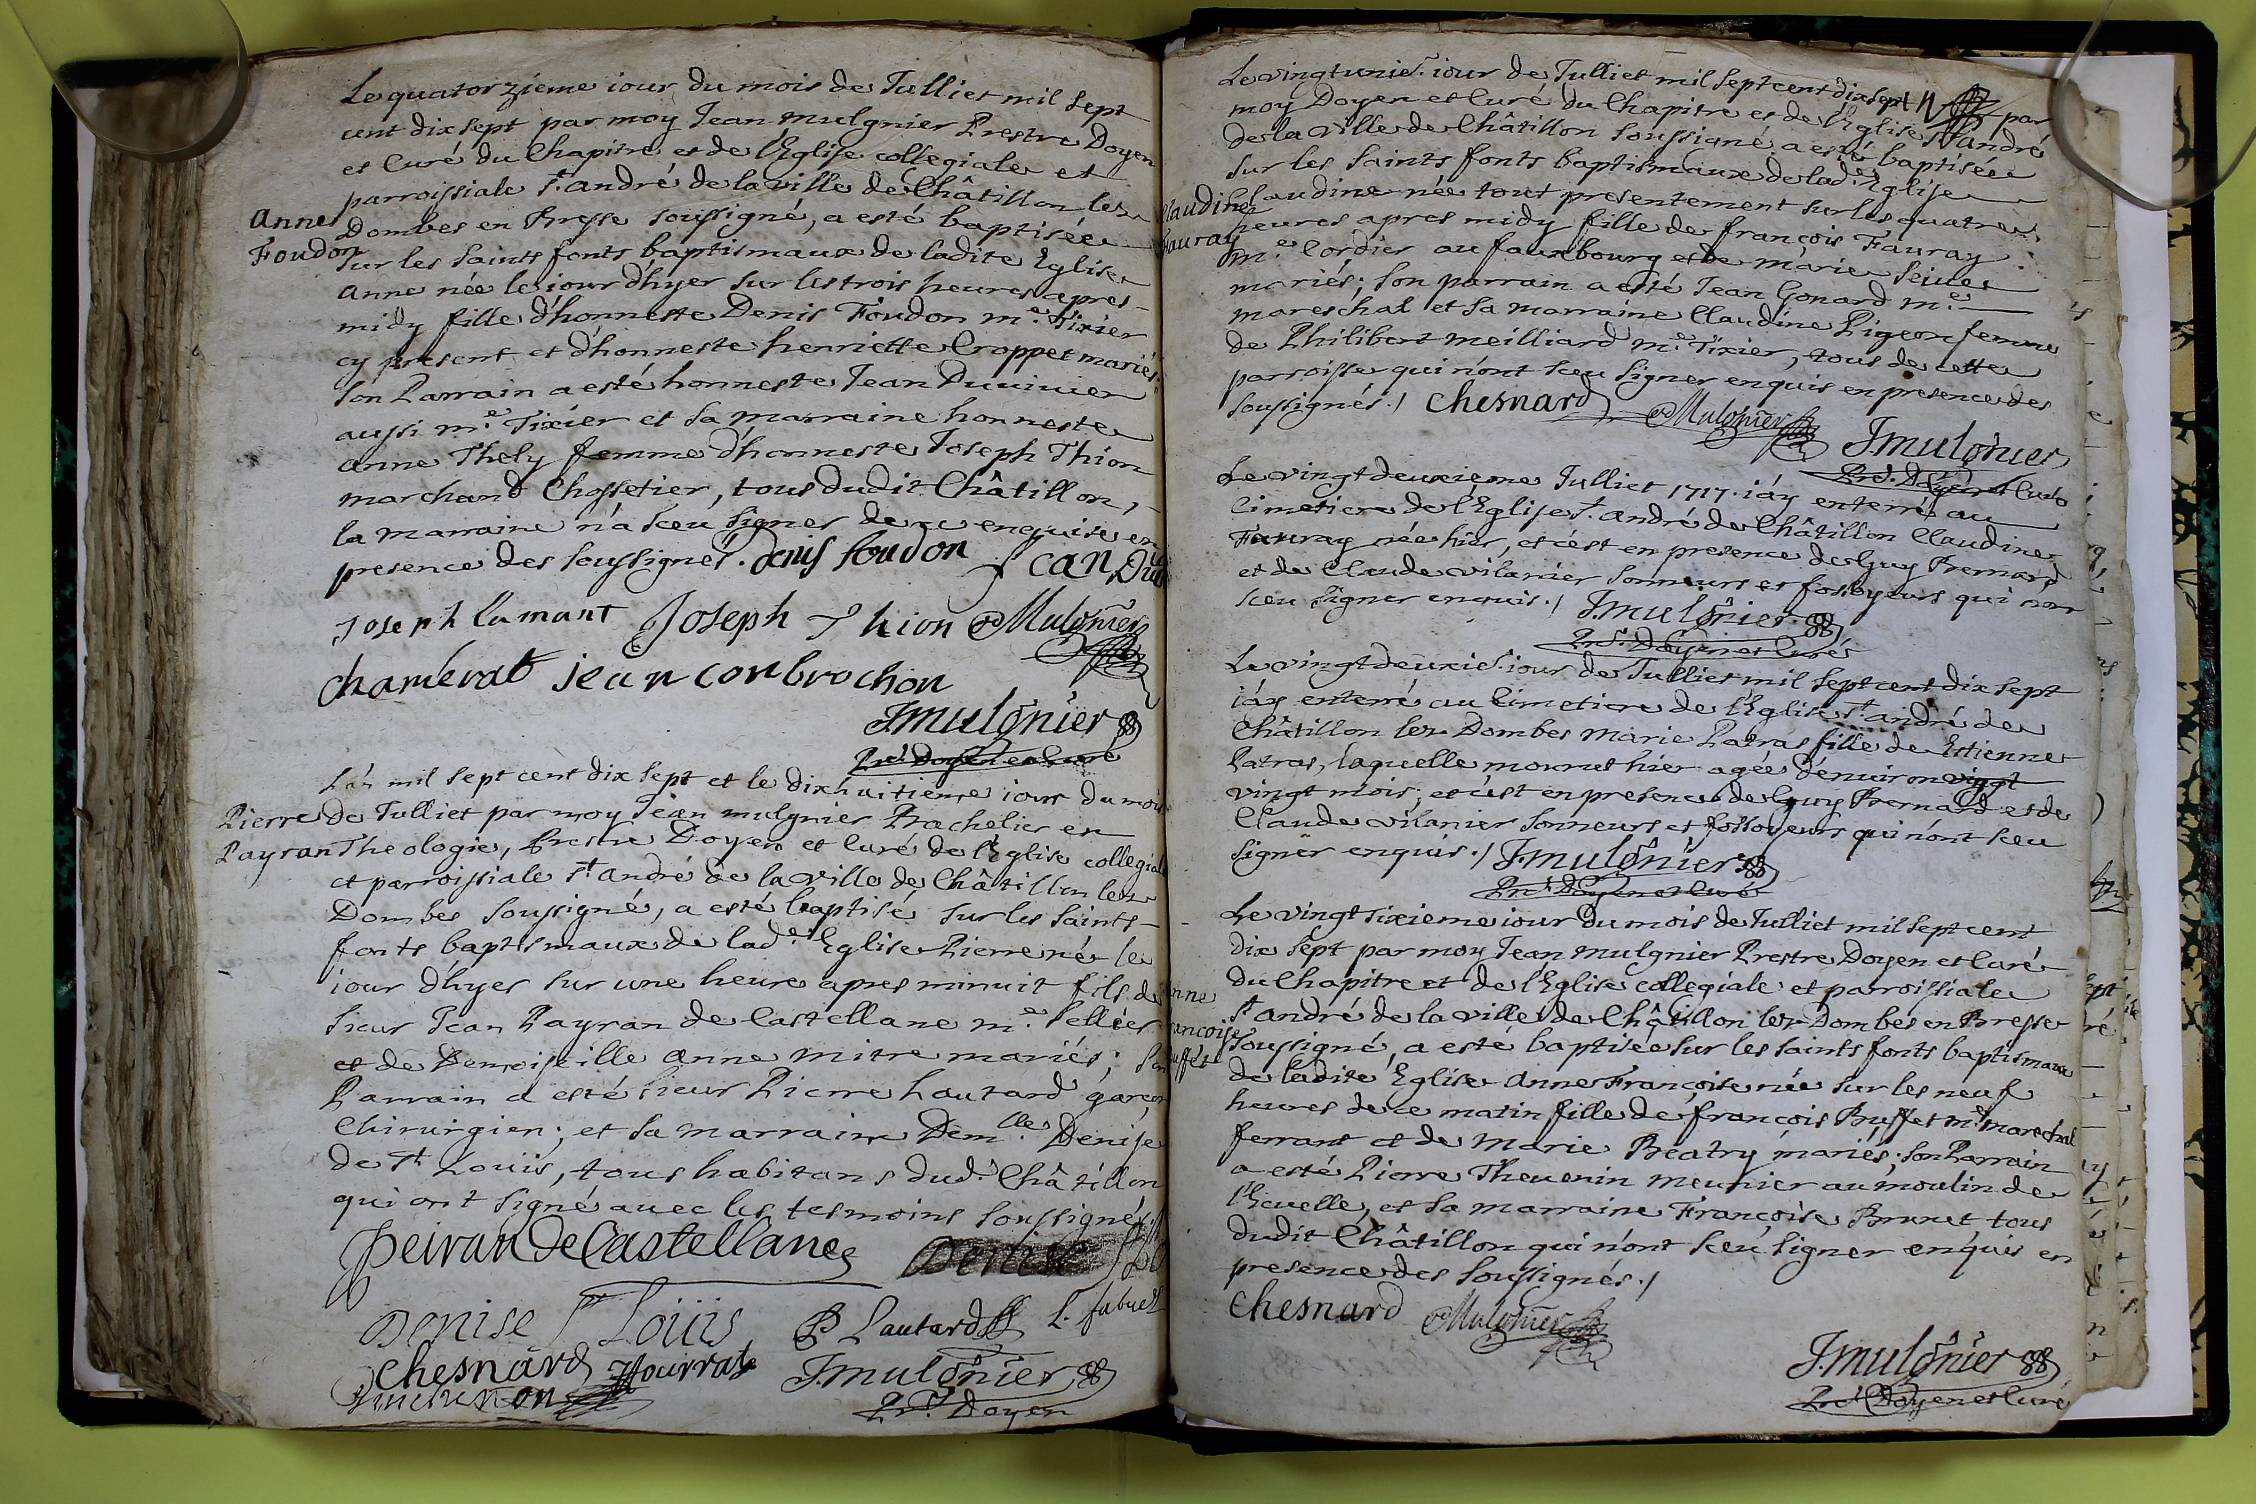 Le quatorzieme iour du mois de Julliet mil sept
cent dix sept par moy Jean mulgnier Prestre Doyen
et Curé du Chapitre et de l'Eglise collegiale et
parroissiale St. andré de la ville de Châtillon les
Anne
Foudon
Dombes en Bresse soussigné, a esté baptisée
sur les saints fonts baptismaux de ladite Eglise
Anne née le iour d'hyer sur les trois heures apres
midy fille d'honneste Denis Foudon me. Tixier
cy present et d'honneste henriette Croppet mariés;
son Parrain a esté honneste Jean Duuiuier
aussi me. Tixier et sa marraine honneste
anne Thely femme d'honneste Joseph Thion
marchand Chossetier, tous dudit Châtillon,
la marraine n'a sceu signer de ce enquise en
presence des soussignés. denis foudon Jean
Joseph lamant Joseph Thion Mulgnier
chamerat jean conbrochon
J. mulgnier
Pre. Doyen et Curé
L'an mil sept cent dix sept et le dix huitieme iour du mois
Pierre
Payran
de Julliet par moy Jean mulgnier Bachelier en
Theologie, Prestre Doyen et Curé de l'Eglise collegiale
et parroissiale St. andré de la ville de Châtillon les
Dombes soussigné, a esté baptisé sur les saints
fonts baptismaux de lade. Eglise Pierre né le
iour d'hyer sur une heure apres minuit fils de
sieur Jean Payran de Castellane me. sellier
et de Demoiseille anne mitre mariés; son
Parrain a esté sieur Pierre hautard garçon
Chirurgien; et sa marraine Demlle. Denise
de St. Loüis, tous habitans dud. Châtillon
qui ont signé auec les tesmoins soussignés.
Peiran de Castellane Denise
Denise St Loüis P Lautard L. fabue
Chesnard Hourrat J. mulgnier
Pre. Doyen
Le vingt unie. iour de Julliet mil sept cent dix sept par
moy Doyen et Curé du Chapitre et de l'Eglise St. André
de la ville de Châtillon soussigné a esté baptisée
sur les saints fonts baptismaux de lade. Eglise
Claudine
Fauray
Claudine née tout presentement sur les quatre
heures apres midy fille de françois Fauray
me. Cordier au fauxbourg et de marie Seiue
mariés; son parrain a esté Jean Gonard me.
mareschal et sa marraine Claudine Pigeon femme
de Philibert meilliard me. Tixier, tous de cette
parroisse qui n'ont sceu signer enquis en presence des
soussignés./ Chesnard Mulgnier
J. mulgnier
Pre. Doyen et Curé
Le vingt deuxieme Julliet 1717. i'ay enterré au
Cimetiere de l'Eglise St. andré de Châtillon Claudine
Fauray née hier, et c'est en presence de Guy Bernard
et de Claude vilanier sonneurs et fossoyeurs qui n'on
sceu signer enquis./ J. mulgnier
Pre. Doyen et Curé
Le vingt deuxie. iour de Julliet mil sept cent dix sept
i'ay enterré au Cimetiere de l'Eglise St. andré de
Châtillon les Dombes Marie Patras fille de Estienne
Patras, laquelle mourut hier agée d'enuiron vingt
vingt mois; et c'est en presence de Guy Bernard et de
Claude vilanier sonneurs et fossoyeurs qui n'ont sceu
signer enquis./ J. mulgnier
Pre. Doyen et Curé
Le vingt sixieme iour du mois de Julliet mil sept cent
dix sept par moy Jean mulgnier Prestre Doyen et Curé
du Chapitre et de l'Eglise collegiale et parroissiale
Anne
françoise
Buffet
St. andré de la ville de Châtillon les Dombes en Bresse
soussigné, a esté baptisée sur les saints fonts baptismaux
de ladite Eglise Anne Françoise née sur les neuf
heures de ce matin fille de françois Buffet me. marechal
ferrant et de Marie Beatry mariés; son Parrain
a esté Pierre Theuenin meunier au moulin de
l'Ecuelle, et sa marraine Françoise Brunet tous
dudit Châtillon qui n'ont sceu signer enquis en
presence des soussignés./
Chesnard Mulgnier
J. mulgnier
Pre. Doyen et Curé